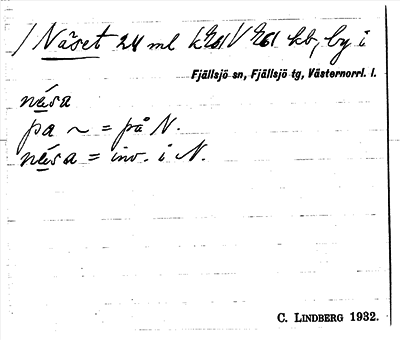 / Näset 24 ml k kb, by i
Fjällsjö sn, Fjällsjö tg, Västernorrl. l.
näsa
pa ~ = på N.
näsa = inv. i N.
C. LINDBERG 1932.